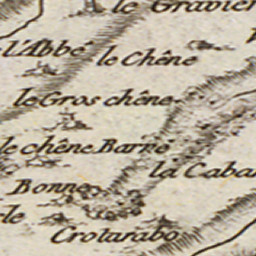 le Gravier
l'Abbé
le Chêne
le Gros chêne
le chêne Barné
la Caba
Bonne
cle
Crotarabo